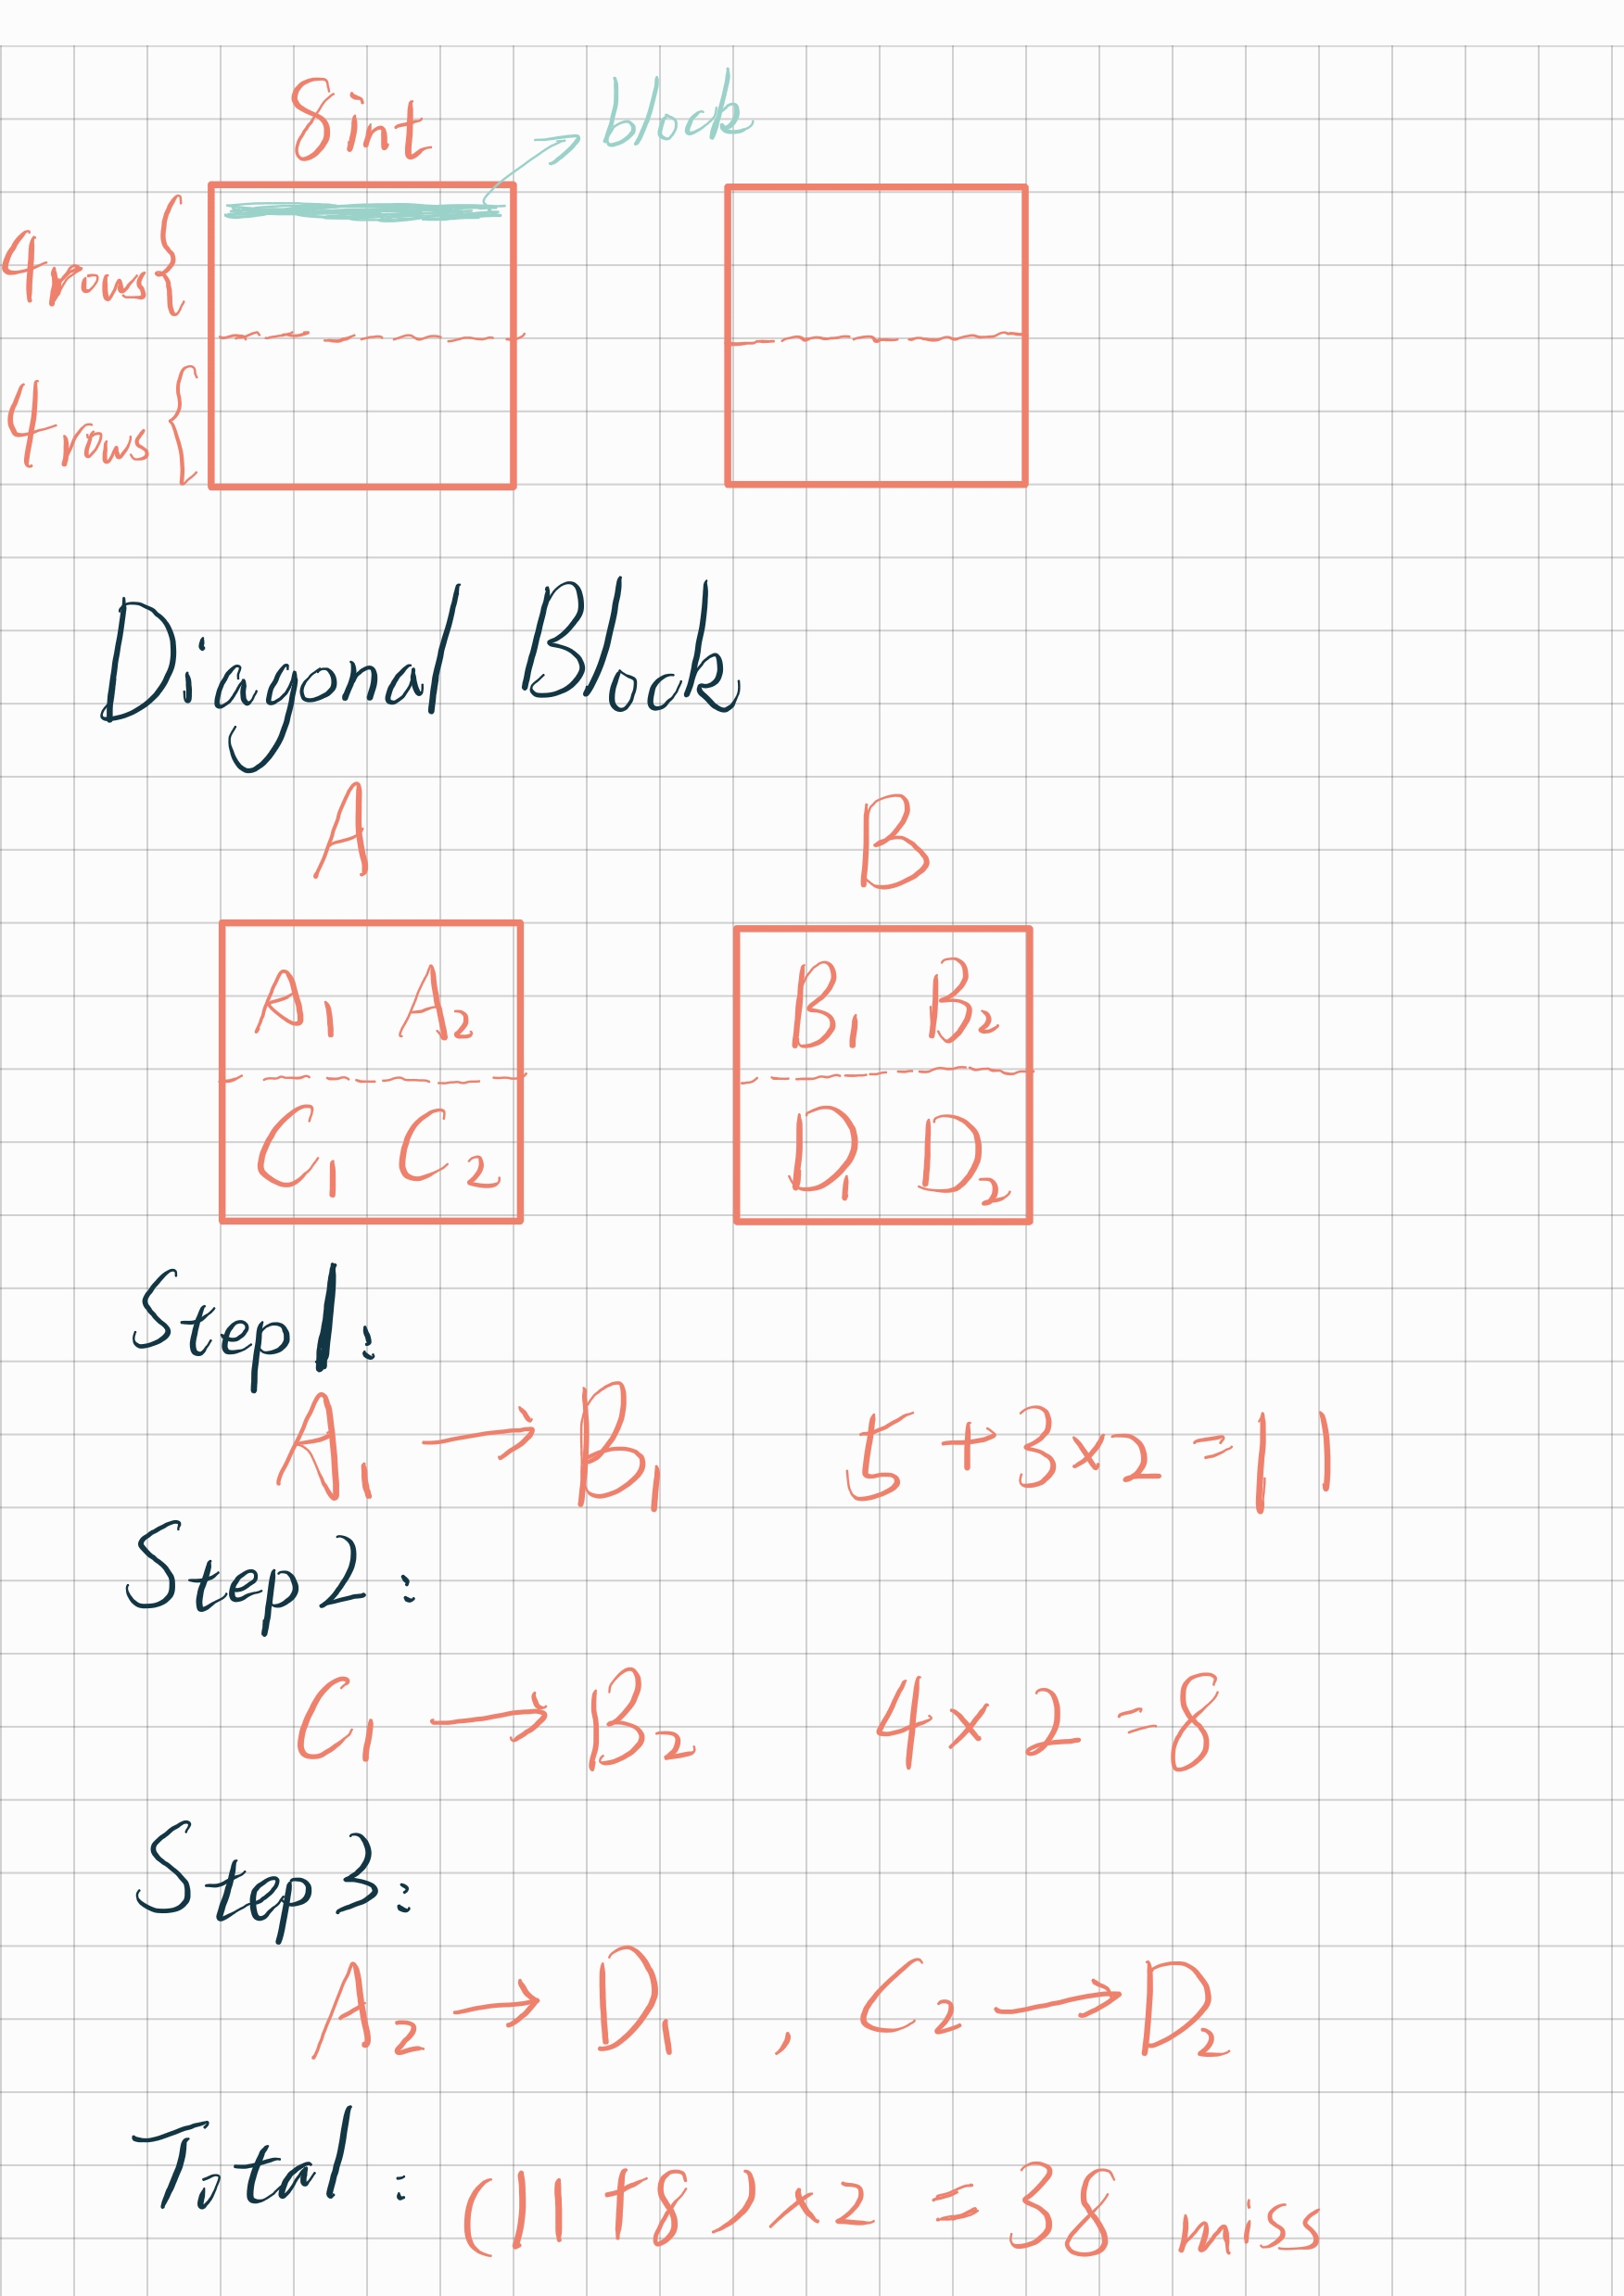 8int block
4rows
4rows
Diagonal Block
A B
A1 A2 B1 B2
C1 C2 D1 D2
Step1:
A1 → B1 5+3×2=11
Step2:
C1 → B2 4×2=8
Step3:
A2 → D1 , C2 → D2
Total: (11+8)×2=38 miss